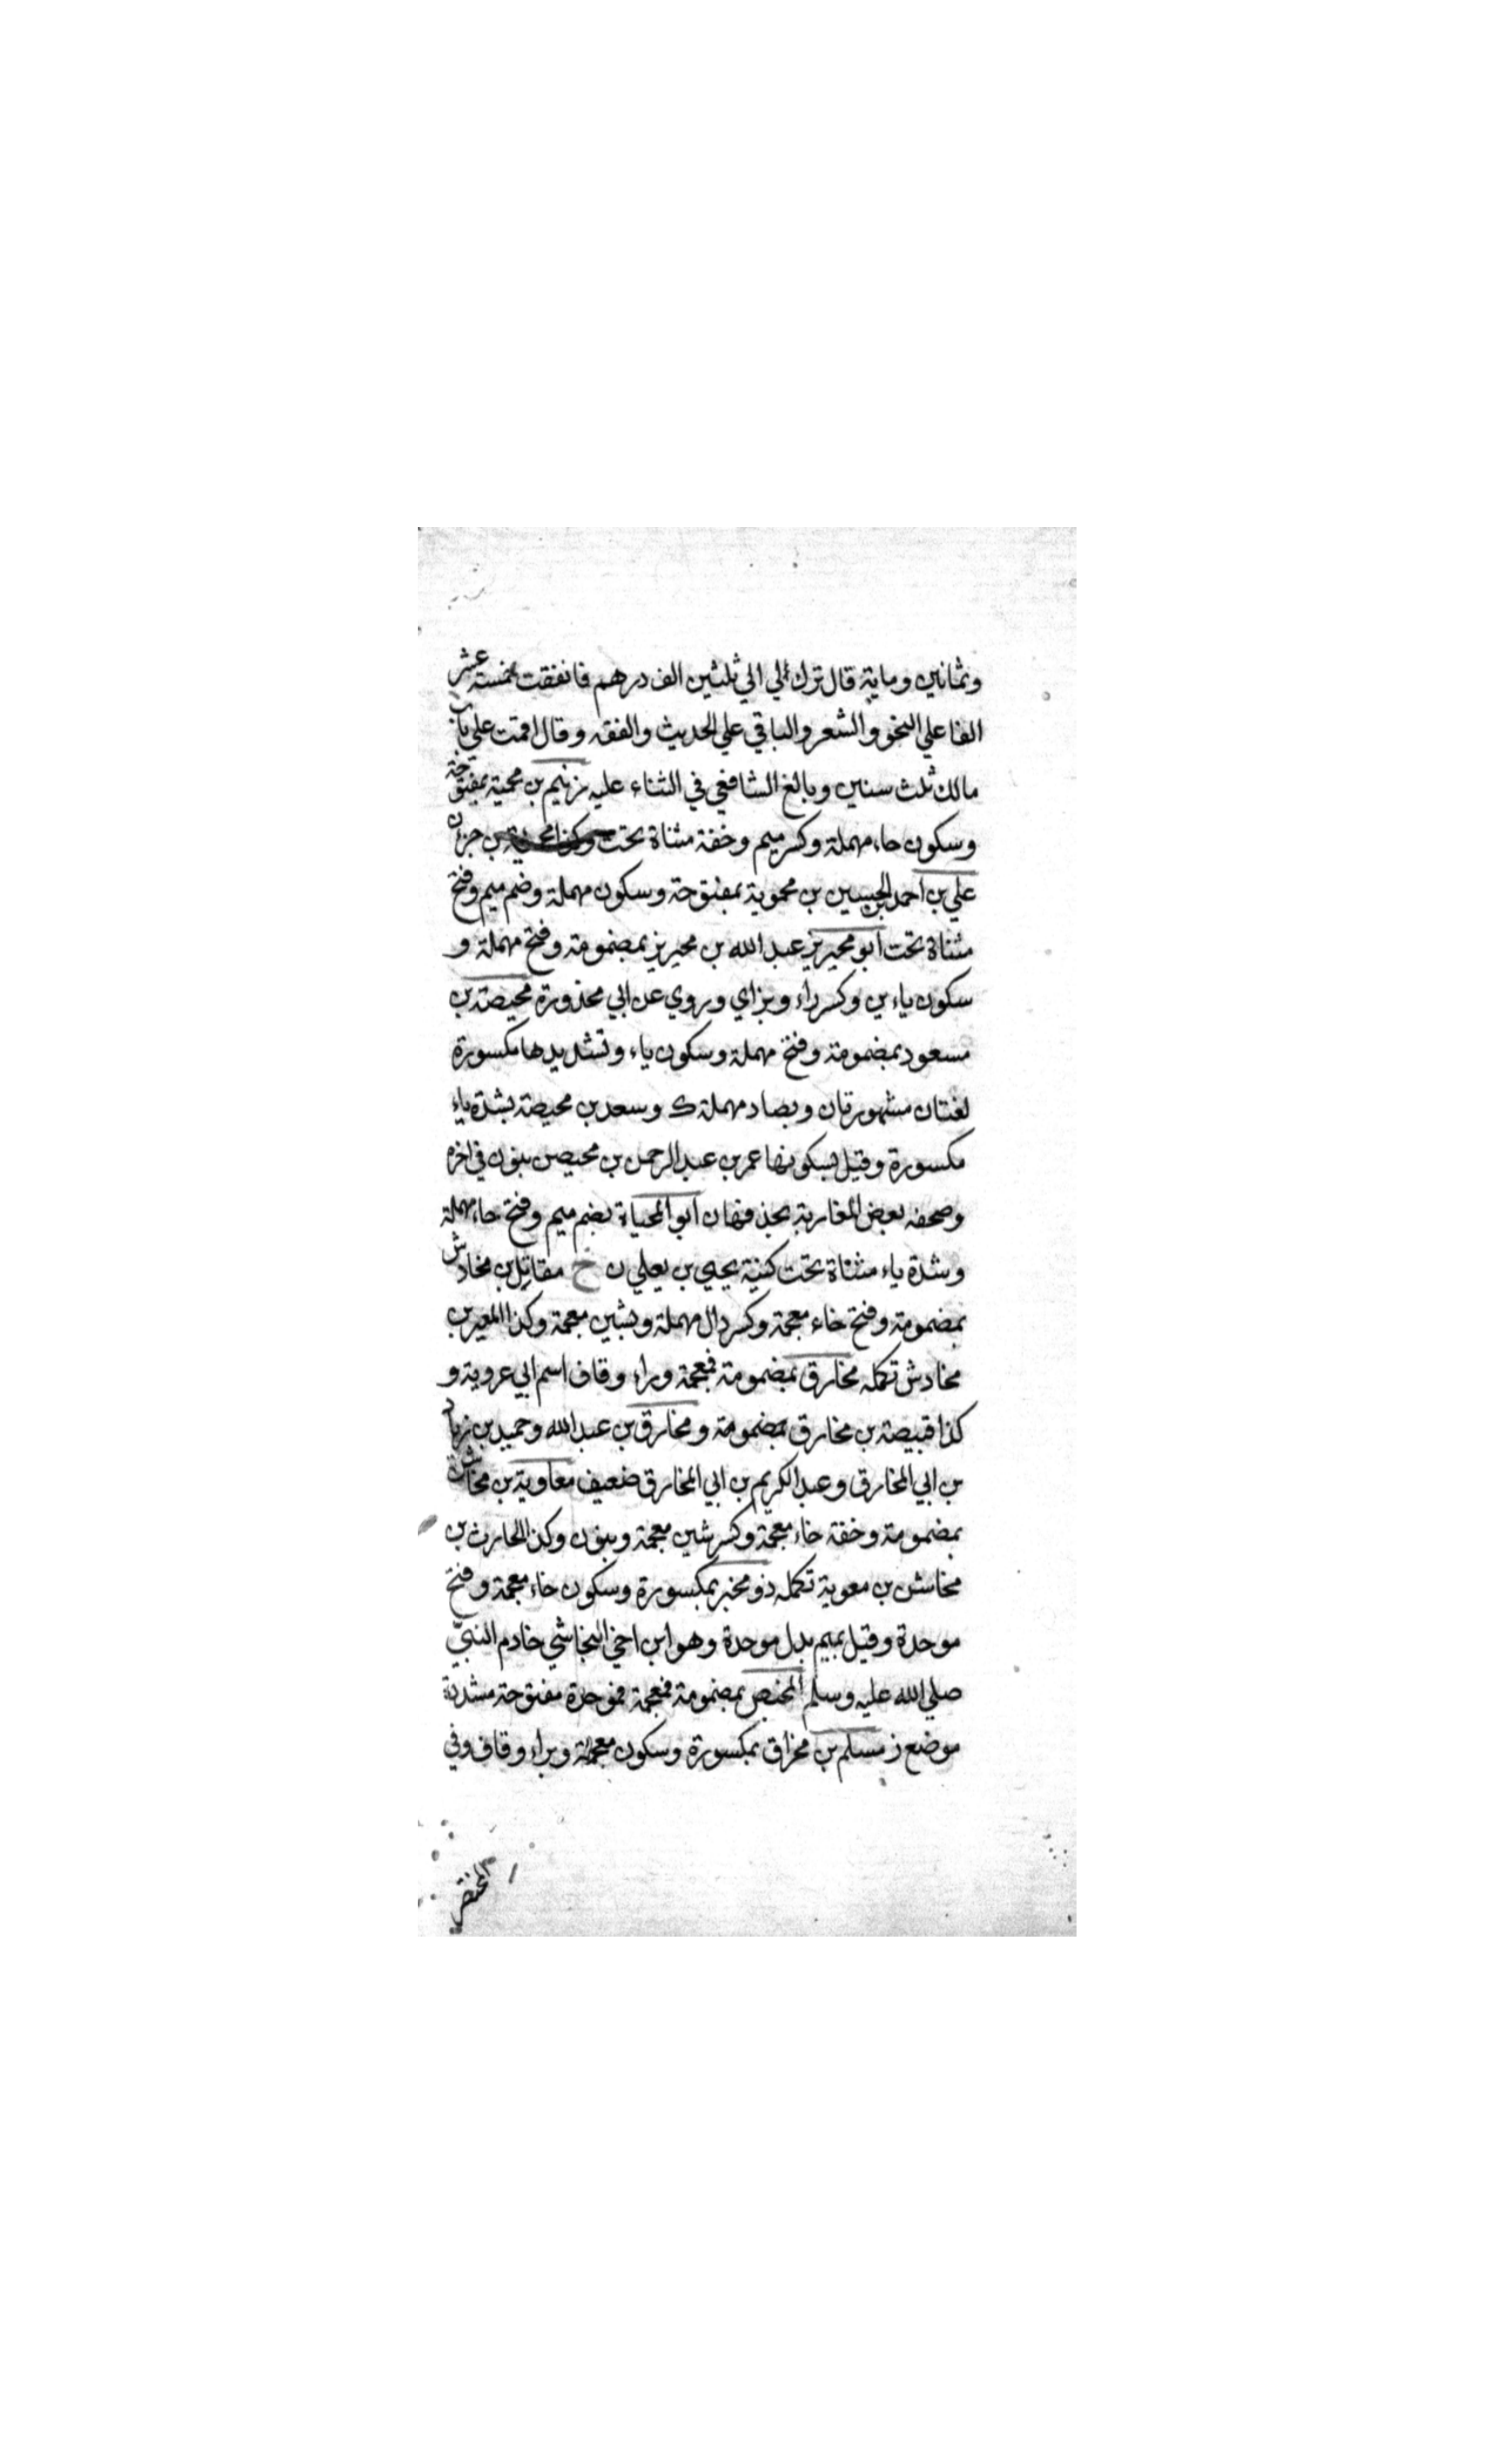 وثمانين وماية قال ترك ابي الي ثلثين الف درهم فانفقت خمسة عشر
الفا علي النحو والشعر والباقي علي الحديث والفقه وقال اقمت علي باب
مالك ثلث سنين وبالغ الشافعي في الثناء عليه زنيم بن محمية بمفتوحة
وسكون حاء مهملة وكسر ميم وخفة مثناة تحت وكذا محمية بن جزء ن
علي بن احمد بن الحسين بن محموية بمفتوحة وسكون مهملة وضم ميم وفتح
مثناة تحت ابو محيريز عبد الله بن محيريز بمضمومة وفتح مهملة و
سكون ياءين وكسر راء وبزاي وروي عن ابي محذورة محيصة بن
مسعود بمضمومة وفتح مهملة وسكون ياء وتشديدها مكسورة
لغتان مشهورتان وبصاد مهملة ك وسعد بن محيصة بشدة ياء
مكسورة وقيل بسكونها عمر بن عبد الرحمن بن محيصن بنون في اخره
وصحفه بعض المغاربة بحذفها ن ابو المحياة بضم ميم وفتح حاء مهملة
وشدة ياء مثناة تحت كنية يحيي بن يعلي ن خ مقاتل بن مخادش
بمضمومة وفتح خاء معجمة وكسر دال مهملة وبشين معجمة وكذا المغير بن
مخادش تكمله مخارق بمضمومة فمعجمة وراء وقاف اسم ابي عروبة و
كذا قبيصة بن مخارق بمضمومة ومخارق بن عبد الله وحميد بن زياد
بن ابي المخارق وعبد الكريم بن ابي المخارق ضعيف معاوية بن مخاشن
بمضمومة وخفة خاء معجمة وكسر شين معجمة وبنون وكذا الحارث بن
مخاشن بن معوية تكمله ذو مخبر بمكسورة وسكون خاء معجمة وفتح
موحدة وقيل بميم بدل موحدة وهو ابن اخي النجاشي خادم النبي
صلي الله عليه وسلم المخبص بمضمومة فمعجمة فموحدة مفتوحة مشددة
موضع ز مسلم بن مخراق بمكسورة وسكون معجمة وبراء وقاف وفي